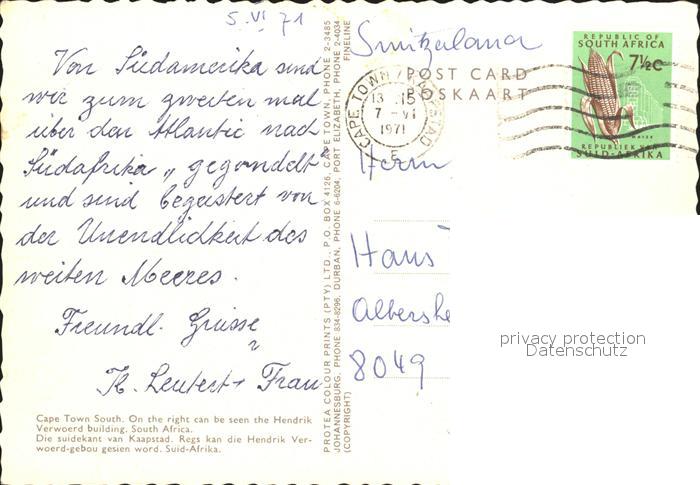 5. VI 71
Von Südamerika sind
wir zum zweiten mal
über den Atlantic nach
Südafrika „ gegondelt"
und sind begeistert von
der Unendlichkeit des
weiten Meeres.
Freundl. Grüsse
K. Leutert + Frau
Cape Town South. On the right can be seen the Hendrik
Verwoerd building. South Africa.
Die suidekant van Kaapstad. Regs kan die Hendrik Ver-
woerd-gebou gesien word. Suid-Afrika.
PROTEA COLOUR PRINTS (PTY) LTD., P.O. BOX 4126, CAPE TOWN, PHONE 2-3485
JOHANNESBURG, PHONE 834-8296, DURBAN, PHONE 6-6204, PORT ELIZABETH, PHONE 2-4034
(COPYRIGHT) FINELINE
Switzerland
POST CARD
POSKAART
CAPE TOWN
13 15
7 -VI
1971
E
REPUBLIC OF
SOUTH AFRICA
7½c
REPUBLIEK VAN
SUID-AFRIKA
Herrn
Hans
Albershe
8049
privacy protection
Datenschutz